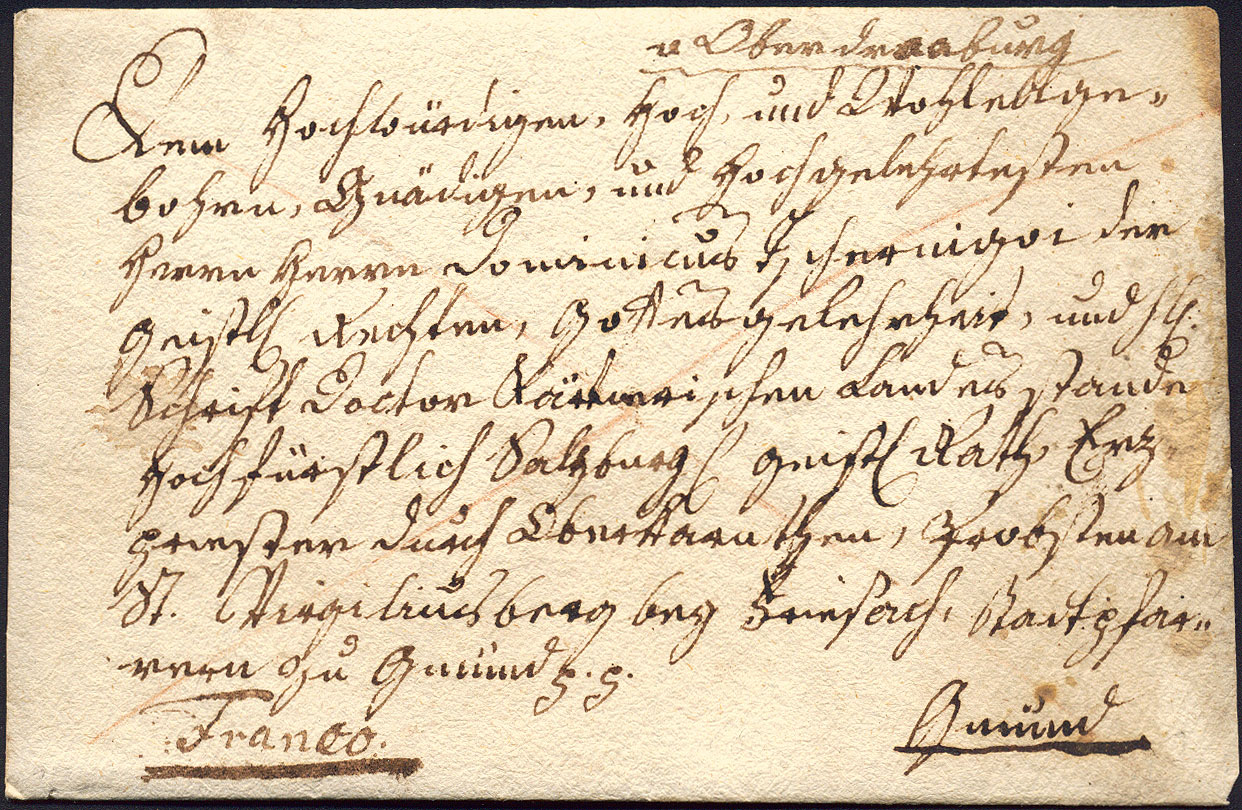 v Oberdraaburg
Dem Hochwürdigen, Hoch, und Wohledlge-
bohrn, Gnädigen, und Hochgelehrtesten
Herrn Herrn Dominicus Tschernigoi der
Geistl Rechten, Gottesgelehrheit, und Hl.
Schrift Doctor Kärtnerischen Landes stande
Hochfürstlich Salzburgl geistl Rath, Erz-
priester durch Oberkärnthen, Probsten am
St. Virgiliusberg bey Friesach, Stadtpfar-
rern zu Gmünd p. p.
Franco.
Gmünd